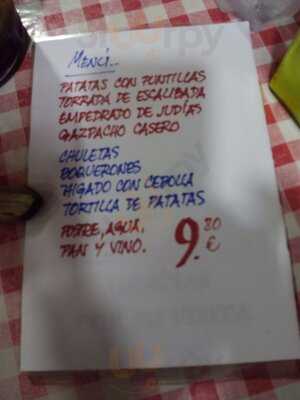 MENÚ..
PATATAS CON PUNTILLAS
TORRADA DE ESCALIBADA
EMPEDRADO DE JUDÍAS
GAZPACHO CASERO
CHULETAS
BOQUERONES
HIGADO CON CEBOLLA
TORTILLA DE PATATAS
POSTRE, AGUA,
PAN Y VINO. 9.80 €